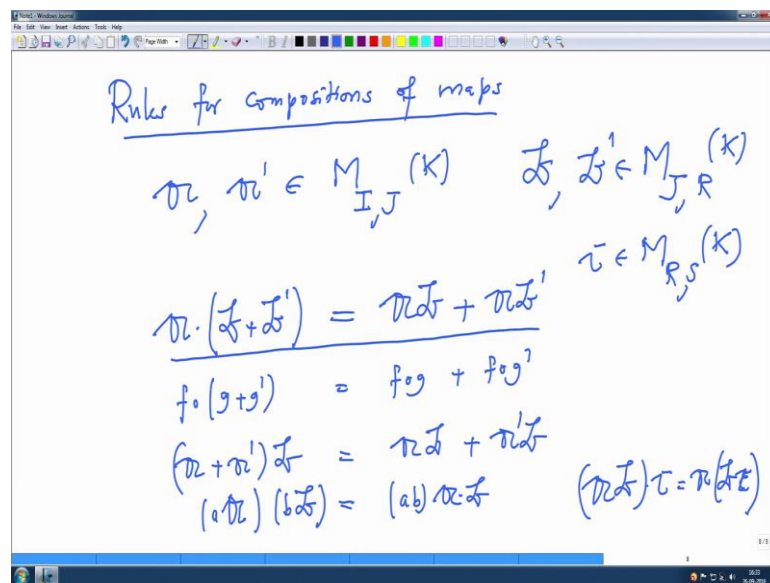 Note1 - Windows Journal
File Edit View Insert Actions Tools Help
Page Width
Rules for compositions of maps
𝔄, 𝔄' ∈ M_{I,J}(K) 𝔅, 𝔅' ∈ M_{J,R}(K)
τ ∈ M_{R,S}(K)
𝔄·(𝔅+𝔅') = 𝔄𝔅 + 𝔄𝔅'
f∘(g+g') = f∘g + f∘g'
(𝔄+𝔄')𝔅 = 𝔄𝔅 + 𝔄'𝔅
(a𝔄)(b𝔅) = (ab)𝔄·𝔅 (𝔄𝔅)·τ = 𝔄(𝔅τ)
8/8
8
16:33